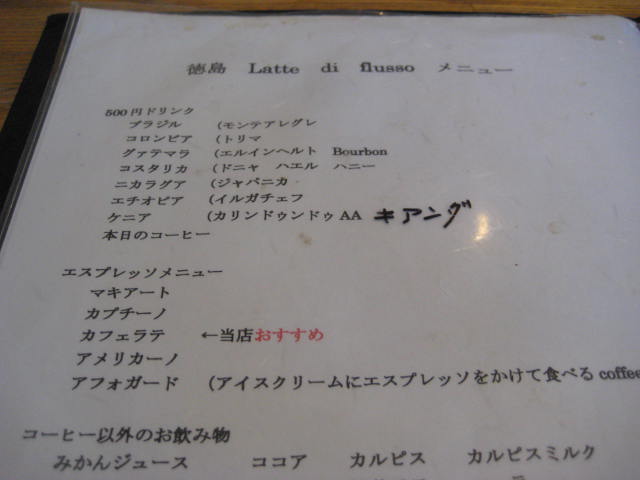 徳島 Latte di flusso メニュー
500円ドリンク
ブラジル (モンテアレグレ
コロンビア (トリマ
グァテマラ (エルインヘルト Bourbon
コスタリカ (ドニャ ハエル ハニー
ニカラグア (ジャパニカ
エチオピア (イルガチェフ
ケニア (カリンドゥンドゥ AA キアング
本日のコーヒー
エスプレッソメニュー
マキアート
カプチーノ
カフェラテ ←当店おすすめ
アメリカーノ
アフォガード (アイスクリームにエスプレッソをかけて食べる coffee
コーヒー以外のお飲み物
みかんジュース ココア カルピス カルピスミルク